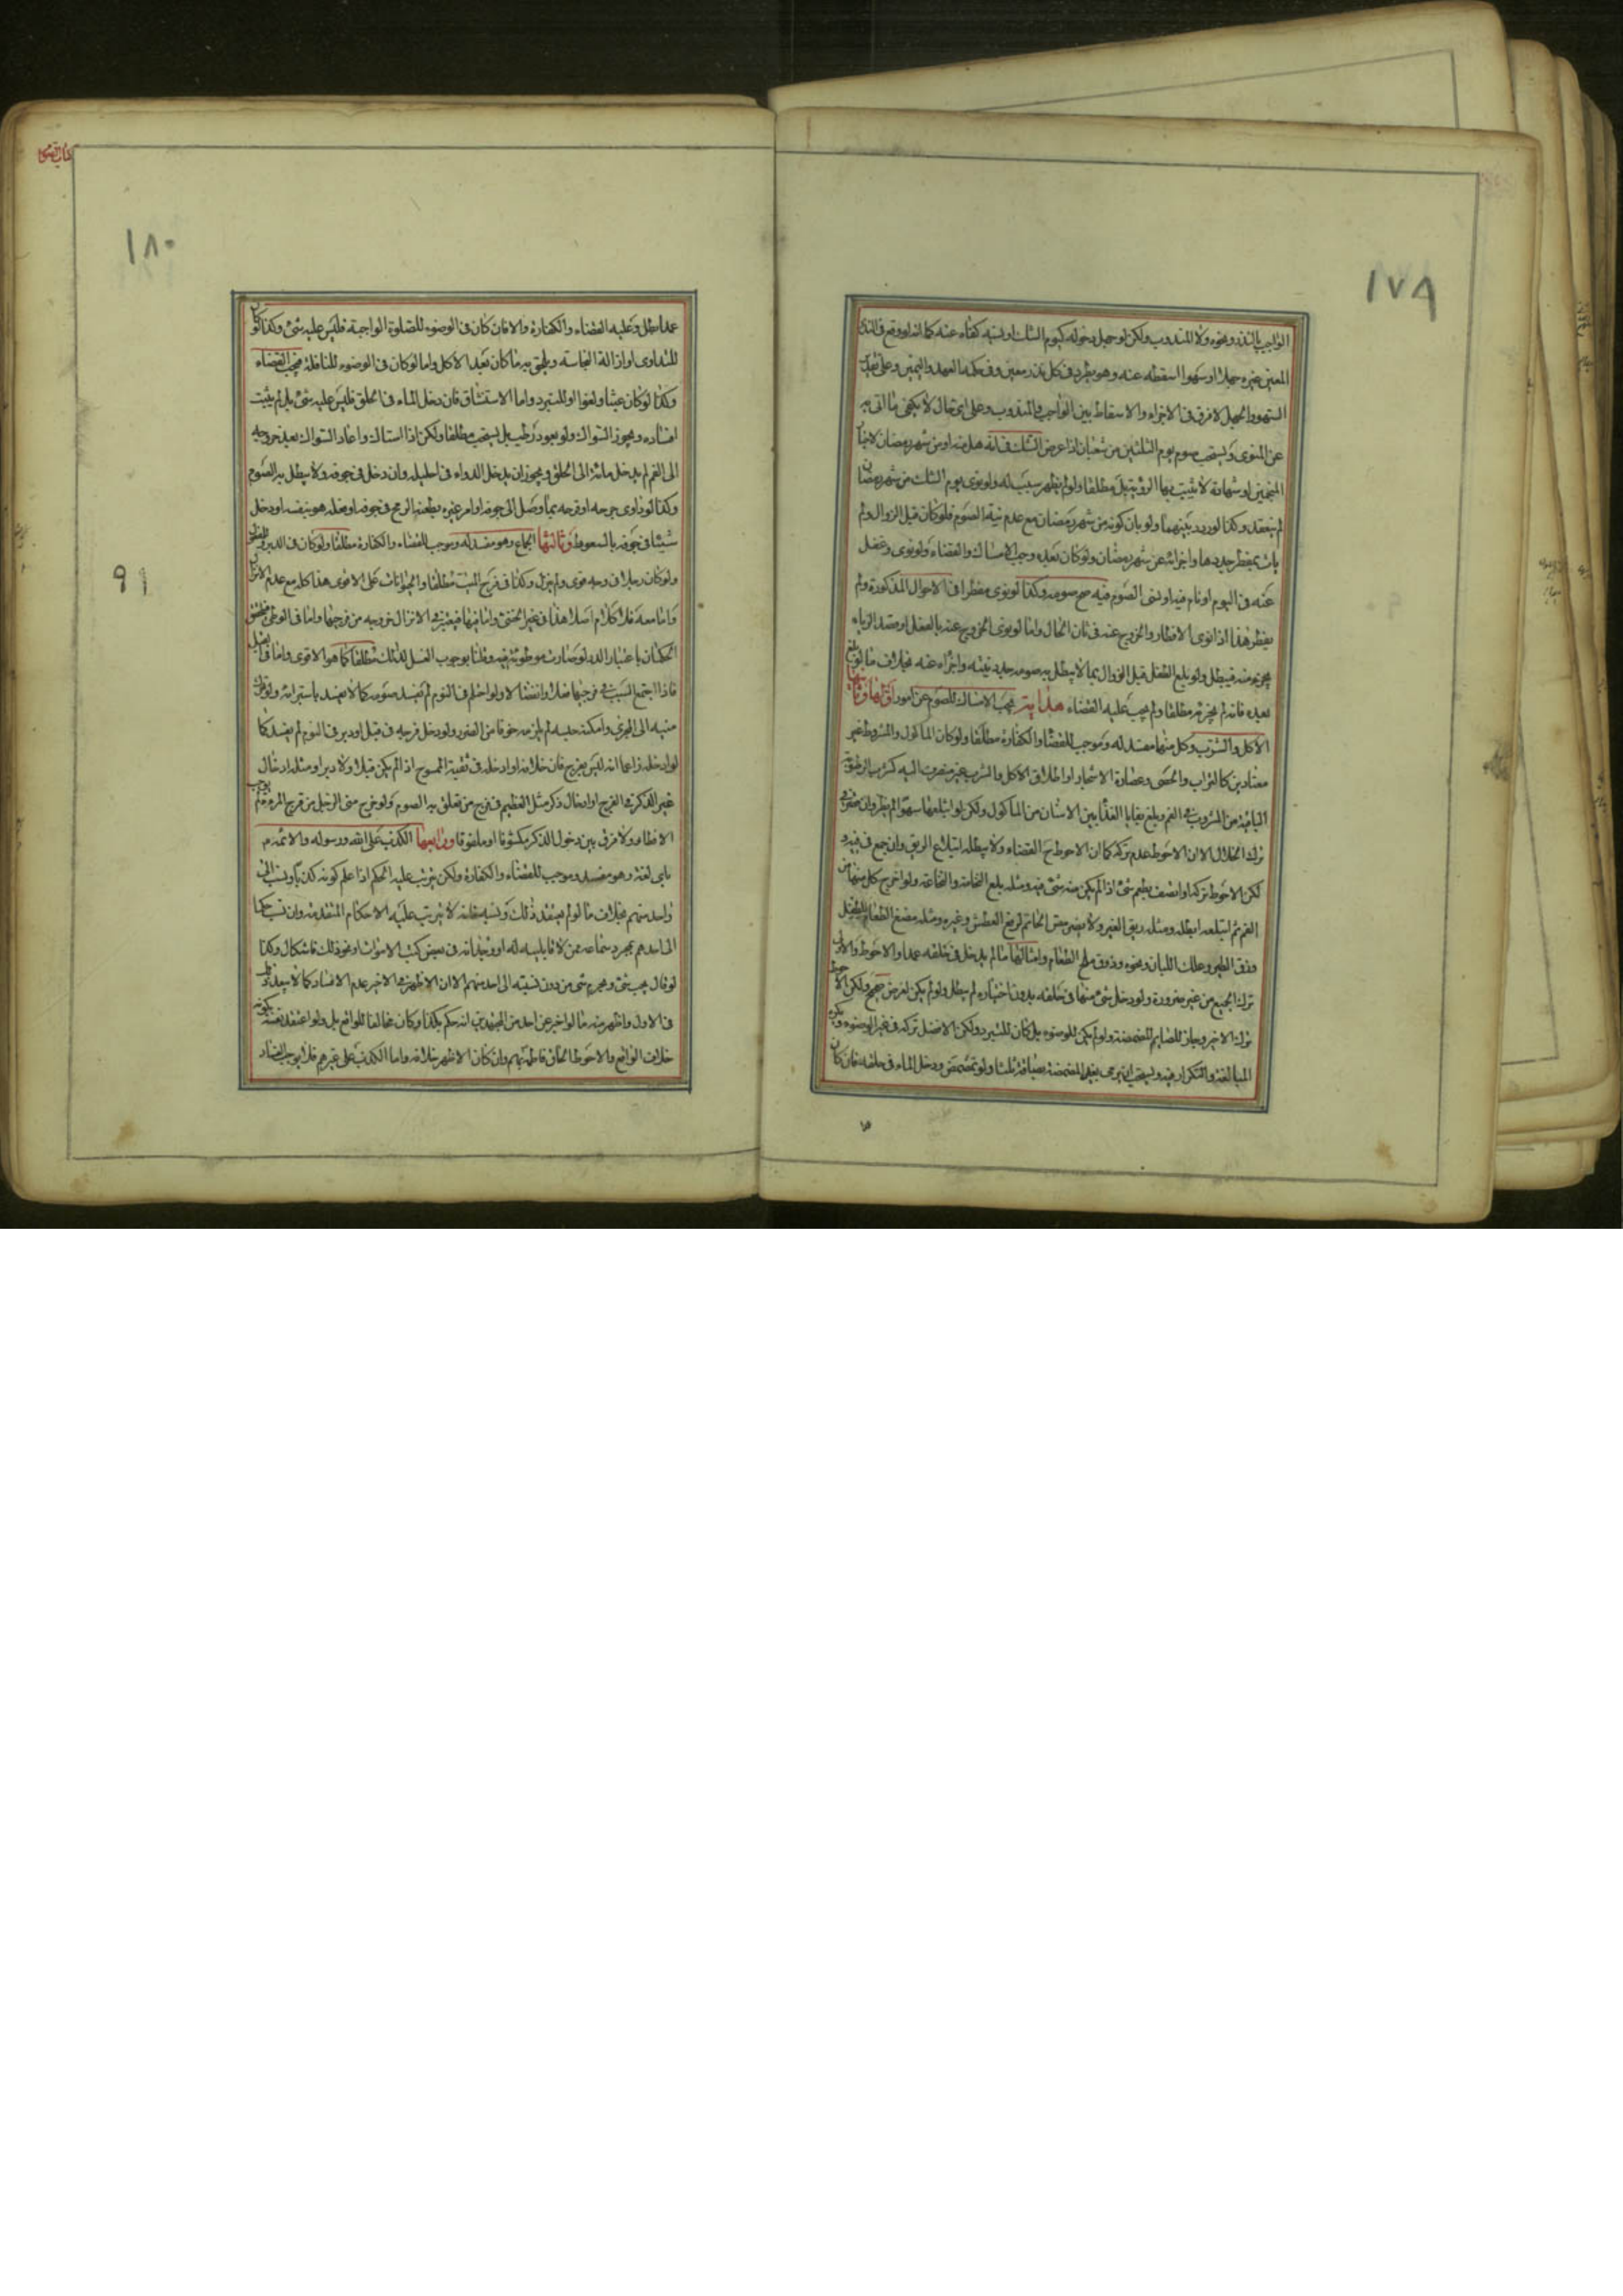 ١٧٩
الواجب بالنذر ونحوه ولا المندوب ولكن لو جهل دخوله كيوم الشك او نسيه كفاه عنه كما انه لو وقع في النذر
المعين غيره جهلا او سهوا اسقطه عنه وهو يطرد في كل نذر معين وفي حكمه العهد واليمين وعلى
السهو والجهل لا فرق في الاجزاء والاسقاط بين الواجب والمندوب وعلى اي حال لا يكفي ما اتى به
عن المنوى ويستحب صوم يوم الثلثين من شعبان اذا عرض الشك في انه هل منه او من شهر رمضان
المنجمين او شهادة لا يثبت بها الرؤية بل مطلقا ولو لم يظهر سبب له ولو نوى يوم الشك من شهر رمضان
لم ينعقد وكذا لو ردد بينهما ولو بان كونه من شهر رمضان مع عدم نية الصوم فلو كان قبل الزوال ولم
يات بمفطر جددها واجزائه عن شهر رمضان ولو كان بعده وجب الامساك والقضاء ولو نوى وغفل
عنه في اليوم او نام فيه او نسي الصوم فيه صح صومه وكذا لو نوى مفطرا في الاحوال المذكورة ولم
يفطر هذا اذا نوى الافطار والخروج عنه في ثان الحال واما لو نوى الخروج عنه بالفعل او قصد الرياء
بجزء منه فيبطل ولو بلغ الطفل قبل الزوال بما لا يبطل به صومه جدد نيته واجزاه عنه بخلاف ما لو بلغ
بعده فانه لم يجزئه مطلقا ولم يجب عليه القضاء هداية يجب الامساك للصوم عن امور اولها وثانيها
الاكل والشرب وكل منهما مفسد له وموجب للقضاء والكفارة مطلقا ولو كان الماكول والمشروط غير
معتادين كالتراب والحصى وعصارة الاشجار او اطلاق الاكل والشرب غير منصرف اليه كشرب الرطوبة
الباقية من المشروب في الفم وبلع بقايا الغذا بين الاسنان من الماكول ولكن لو ابتلعها سهوا لم يفطر وان
ترك الخلال الا ان الاحوط عدم تركه كما ان الاحوط ح القضاء ولا يبطله ابتلاع الريق وان جمع في فيه و
لكن الاحوط تركه او اتصف بطعم شئ اذا لم يكن منه شئ فيه ومثله بلع النخامة والنخاعة ولو اخرج كل منهما من
الفم ثم ابتلعه ابطله ومثله ريق الغير ولا يضر مص الخاتم لرفع العطش وغيره ومثله مضغ الطعام للطفل
وذق الطير وعلك اللبان ونحوه وذوق ملح الطعام وامثالها ما لم يدخل في حلقه عمدا والاحوط والاولى
ترك الجميع من غير ضرورة ولو دخل شئ منها في حلقه بدون اختياره لم يبطل ولو لم يكن لغرض صحيح ولكن الاحوط
ترك الاخير وجاز للصايم المضمضة ولو لم يكن للوضوء بل كان للتبرد ولكن الافضل تركه في غير الوضوء ويكره
المبالغة والتكرار فيه ويستحب ان يرمى بعد المضمضة بصاقة ثلثا ولو تمضمض ودخل الماء في حلقه فان كان
١٨٠
٩١
عمدا بطل وعليه القضاء والكفارة والا فان كان في الوضوء للصلوة الواجبة فليس عليه شئ وكذا لو كان
للتداوى او ازالة النجاسة ويلحق به ما كان بعد الاكل واما لو كان في الوضوء للنافلة فيجب القضاء
وكذا لو كان عبثا ولغوا او للتبرد واما الاستنشاق فان دخل الماء في الحلق فليس عليه شئ بل لم يثبت
افساده ويجوز السواك ولو بعود رطب بل يستحب مطلقا ولكن اذا استاك واعاد السواك بعد خروجه
الى الفم لم يدخل مائه الى الحلق ويجوز ان يدخل الدواء في احليله وان دخل في جوفه ولا يبطل به الصوم
وكذا لو داوى جرحه او قرحه بما وصل الى جوفه او امر غيره بطعنه الرمح في جوفه او فعله هو بنفسه او دخل
شيئا في جوفه بالسعوط وثالثها الجماع وهو مفسد له وموجب للقضاء والكفارة مطلقا ولو كان في الدبر
ولو كان رجلا في وجه قوى ولم ينزل وكذا في فرج الميت مطلقا والحيوانات على الاقوى هذا كله مع عدم الانزال
واما معه فلا كلام اصلا هذا في غير الخنثى واما فيها فيعتبر في الانزال خروجه من فرجيها واما في الوطى
الحكمان باعتبار الدبر لو صارت موطوئة فيه وقلنا بوجوب الغسل لذلك مطلقا كما هو الاقوى واما في
فاذا اجتمع السبب في فرجيها فعلا وانفعالا ولو احتلم في النوم لم يفسد صومه كما لا يفسد باستبرائه ولو تحرك
منيه الى المجرى وامكنه حبسه لم يلزمه خوفا من الضرر ولو دخل فرجه في قبل او دبر في النوم لم يفسد كما
لو ادخله زاعما انه ليس بفرج فبان خلافه او ادخله في ثقبة الممسوح اذا لم يكن قبلا ولا دبرا ومثله ادخال
غير الذكر في الفرج او ادخال ذكر مثل العظيم في فرج من تعلق به الصوم ولو خرج منى الرجل من فرج المرءة لم يوجب
الافطار ولا فرق بين دخول الذكر مكشوفا او ملفوفا ورابعها الكذب على الله ورسوله والائمة م
باى لغة وهو مفسد وموجب للقضاء والكفارة ولكن يترتب عليه الحكم اذا علم كونه كذبا ونسب الى
واحد منهم بخلاف ما لو لم يعتقد ذلك ونسبه فانه لا يترتب عليه الاحكام المتقدمة وان نسب حكما
الى احدهم بمجرد سماعه ممن لا قابلية له او وجدانه في بعض كتب الاموات او نحو ذلك فاشكال وكذا
لو قال يجب شئ ويحرم شئ من دون نسبته الى احد منهم الا ان الاظهر في الاخير عدم الافساد كما لا يبعد
في الاول واظهر منه ما لو اخبر عن احد من المجتهدين انه حكم بكذا وكان مخالفا للواقع بل ولو اعتقد نفسه بكونه
خلاف الواقع والاحوط الحاق فاطمة بهم وان كان الاظهر خلافه واما الكذب على غيرهم فلا يوجب الفساد